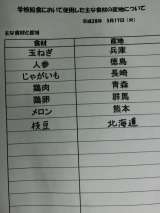 学校給食において使用した主な食材の産地について
平成28年 5月17日 (火)
主な食材と産地
食材 産地
玉ねぎ 兵庫
人参 徳島
じゃがいも 長崎
鶏肉 青森
鶏卵 群馬
メロン 熊本
枝豆 北海道